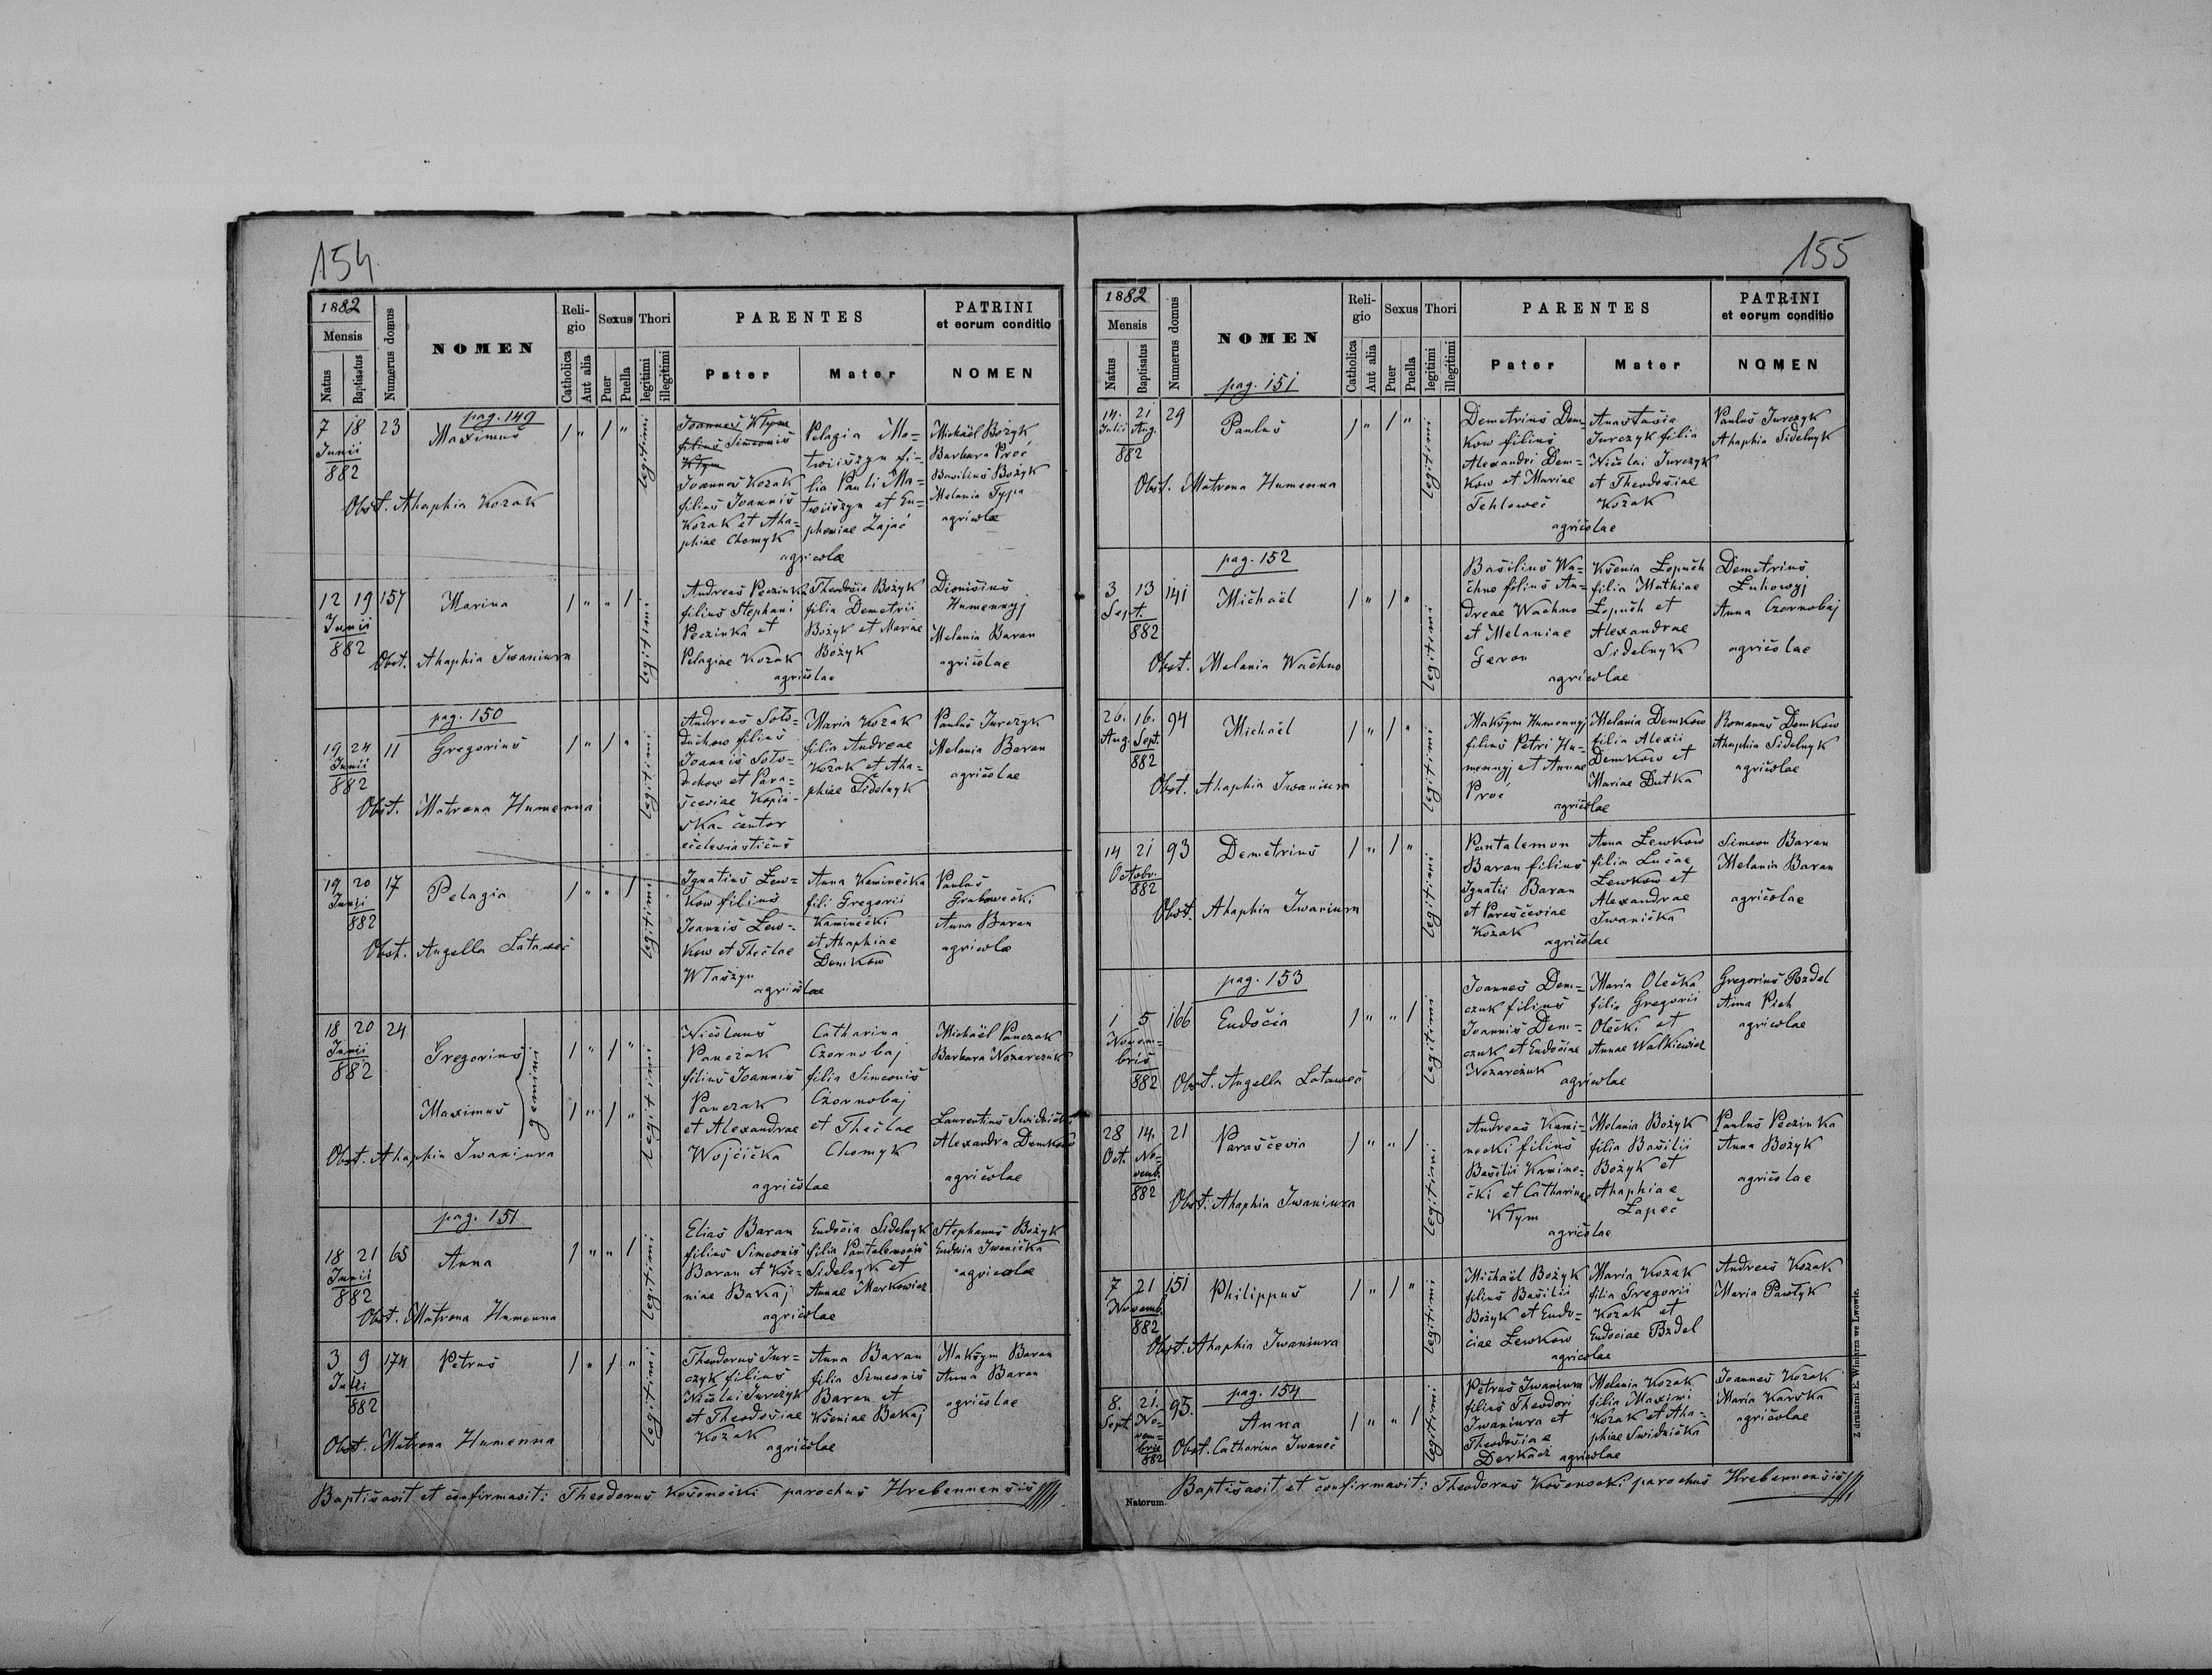 154
1882
Mensis
Natus
Baptisatus
Numerus domus
NOMEN
Reli-
gio
Catholica
Aut alia
Sexus
Puer
Puella
Thori
legitimi
illegitimi
PARENTES
Pater
Mater
PATRINI
et eorum conditio
NOMEN
pag. 149
7 18 23 Maximus
Junii
882
Obst. Ahaphia Kozak
1 " 1 "
legitimi
Joannes Kłym
filius Simeonis
Kłym
Joannes Kozak
filius Joannis
Kozak et Aha-
phiae Chomyk
Pelagia Ma-
twiiszyn fi-
lia Pauli Ma-
twiiszyn et Eu-
phemiae Zając
agricolæ
Michaël Bożyk
Barbara Proć
Basilius Bożyk
Melania Typa
agricolæ
12 19 157 Marina
Junii
882
Obst. Ahaphia Iwaniura
1 " " 1
legitimi
Andreas Peczinka
filius Stephani
Peczinka et
Pelagiae Kozak
Theodosia Bożyk
filia Demetrii
Bożyk et Mariae
Bożyk
agricolae
Dionisius
Humennyj
Melania Baran
agricolae
pag. 150
19 24 11 Gregorius
Junii
882
Obst. Matrona Humenna
1 " 1 "
legitimi
Andreas Soło-
duchow filius
Joannis Soło-
duchow et Para-
sceviae Kopia-
ska - cantor
ecclesiasticus
Maria Kozak
filia Andreae
Kozak et Aha-
phiae Sidelnyk
Paulus Jurczyk
Melania Baran
agricolae
19 20 17 Pelagia
Junii
882
Obst. Angella Latawec
1 " " 1
legitimi
Ignatius Lew-
kow filius
Joannis Lew-
kow et Theclae
Właszyn
Anna Kaminecka
fili Gregorii
Kaminecki
et Ahaphiae
Demkow
agricolae
Paulus
Grabowecki
Anna Baran
agricolæ
18 20 24
Junii
882
Gregorius
Maximus
gemini
Obst. Ahaphia Iwaniura
1 " 1 "
1 " 1 "
legitimi
Nicolaus
Panczak
filius Joannis
Panczak
et Alexandrae
Wojcicka
Catharina
Czornobaj
filia Simeonis
Czornobaj
et Theclae
Chomyk
agricolae
Michaël Panczak
Barbara Nozarczuk
Laurentius Swidnicki
Alexandra Demkow
agricolae
pag. 151
18 21 65 Anna
Junii
882
Obst. Matrona Humenna
1 " " 1
legitimi
Elias Baran
filius Simeonis
Baran et Kse-
niae Bakaj
Eudocia Sidelnyk
filia Pantalemonis
Sidelnyk et
Annae Markowicz
agricolae
Stephanus Bożyk
Eudocia Iwanicka
agricolæ
3 9 174 Petrus
Julii
882
Obst. Matrona Humenna
1 " 1 "
legitimi
Theodorus Jur-
czyk filius
Nicolai Jurczyk
et Theodosiae
Kozak
Anna Baran
filia Simeonis
Baran et
Kseniae Bakaj
agricolae
Maksym Baran
Anna Baran
agricolae
Baptisavit et confirmavit: Theodorus Kosonocki parochus Hrebennensis
155
1882
Mensis
Natus
Baptisatus
Numerus domus
NOMEN
Reli-
gio
Catholica
Aut alia
Sexus
Puer
Puella
Thori
legitimi
illegitimi
PARENTES
Pater
Mater
PATRINI
et eorum conditio
NOMEN
pag. 151
14. 21 29 Paulus
Julii Aug.
882
Obst. Matrona Humenna
1 " 1 "
legitimi
Demetrius Dem-
kow filius
Alexandri Dem-
kow et Mariae
Tehlowec
Anastasia
Jurczyk filia
Nicolai Jurczyk
et Theodosiae
Kozak
agricolae
Paulus Jurczyk
Ahaphia Sidelnyk
pag. 152
3 13 141 Michaël
Sept.
882
Obst. Melania Wachno
1 " 1 "
legitimi
Basilius Wa-
chno filius An-
dreae Wachno
et Melaniae
Geron
Ksenia Łopuch
filia Mathiae
Łopuch et
Alexandrae
Sidelnyk
agricolae
Demetrius
Łuhowyj
Anna Czornobaj
agricolae
26. 16. 94 Michaël
Aug. Sept.
882
Obst. Ahaphia Iwaniura
1 " 1 "
legitimi
Maksym Humennyj
filius Petri Hu-
mennyj et Annae
Proć
Melania Demkow
filia Alexii
Demkow et
Mariae Dutka
agricolae
Romanus Demkow
Ahaphia Sidelnyk
agricolae
14 21 93 Demetrius
Octobr.
882
Obst. Ahaphia Iwaniura
1 " 1 "
legitimi
Pantalemon
Baran filius
Ignatii Baran
et Parasceviae
Kozak
Anna Lewkow
filia Lucae
Lewkow et
Alexandrae
Iwanicka
agricolae
Simeon Baran
Melania Baran
agricolae
pag. 153
1 5 166 Eudocia
Novem-
bris
882
Obst. Angella Latawec
1 " " 1
legitimi
Joannes Dem-
czuk filius
Joannis Dem-
czuk et Eudociae
Nozarczuk
Maria Olecka
filia Gregorii
Olecki et
Annae Walkiewicz
agricolae
Gregorius Bzdel
Anna Pich
agricolae
28 14. 21 Parascevia
Oct. No-
vemb.
882
Obst. Ahaphia Iwaniura
1 " " 1
legitimi
Andreas Kami-
necki filius
Basilii Kamine-
cki et Catharinae
Kłym
Melania Bożyk
filia Basilii
Bożyk et
Ahaphiae
Łapec
agricolae
Paulus Peczinka
Anna Bożyk
agricolae
7 21 151 Philippus
Novemb.
882
Obst. Ahaphia Iwaniura
1 " 1 "
legitimi
Michaël Bożyk
filius Basilii
Bożyk et Eudo-
ciae Lewkow
Maria Kozak
filia Gregorii
Kozak et
Eudociae Bzdel
agricolae
Andreas Kozak
Maria Pawłyk
pag. 154
8. 21. 95. Anna
Sept. No-
vem-
bris
882
Obst. Catharina Iwanec
1 " " 1
legitimi
Petrus Iwaniura
filius Theodori
Iwaniura et
Theodosiae
Derkacz
Melania Kozak
filia Maximi
Kozak et Aha-
phiae Swidnicka
agricolae
Joannes Kozak
Maria Karska
agricolae
Natorum.
Baptisavit et confirmavit: Theodorus Kosonocki parochus Hrebennensis
Z drukarni E. Winiarza we Lwowie.